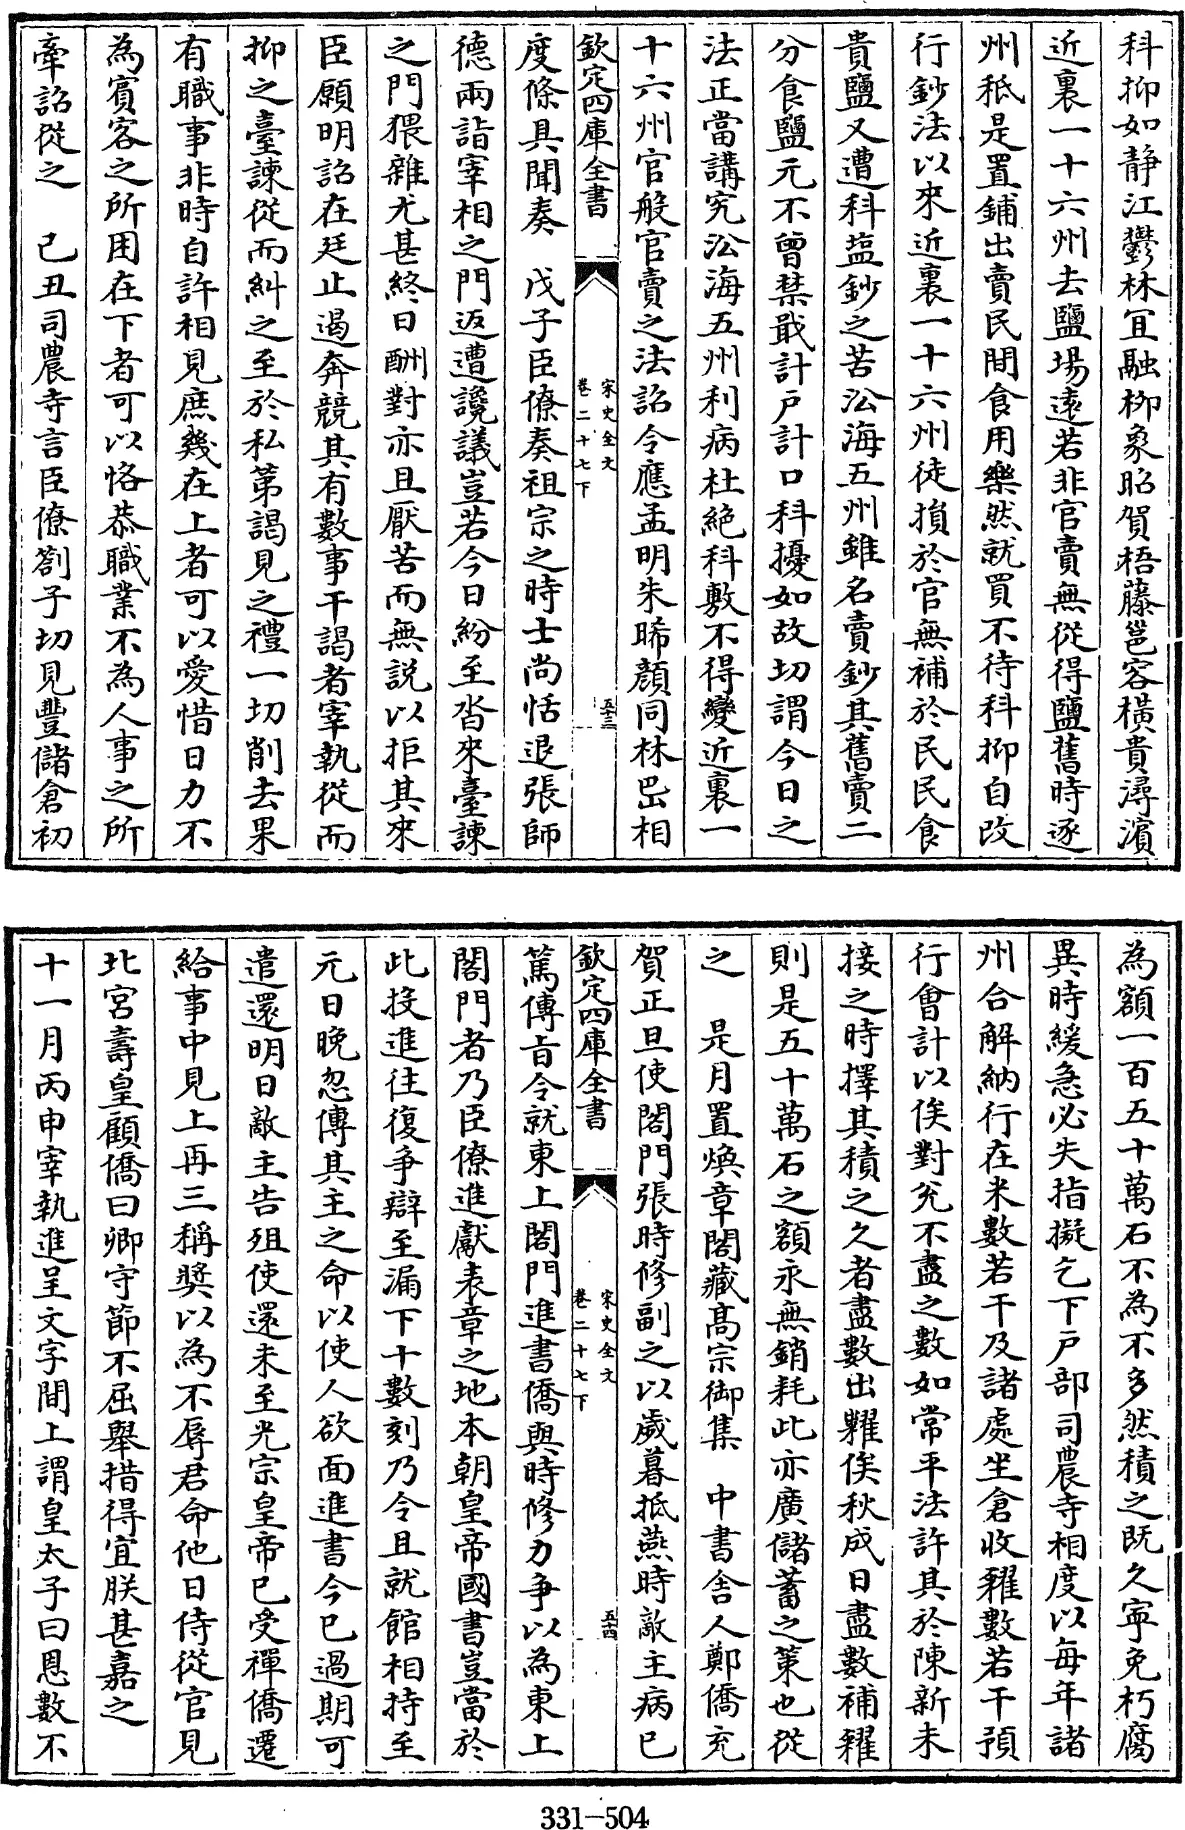 科抑如静江鬱林宜融栁象昭賀梧藤邕容横貴潯濵
近裏一十六州去鹽場逺若非官賣無從得鹽舊時逐
州秪是置鋪出賣民間食用樂然就買不待科抑自改
行鈔法以來近裏一十六州徒損於官無補於民民食
貴鹽又遭科塩鈔之苦㳂海五州雖名賣鈔其舊賣二
分食鹽元不曾禁戢計戸計口科擾如故切謂今日之
法正當講究㳂海五州利病杜絶科敷不得變近裏一
十六州官般官賣之法詔令應孟明朱晞顔同林岊相
欽定四庫全書
宋史全文
卷二十七下
五十三
度條具聞奏　戊子臣僚奏祖宗之時士尚恬退張師
德兩詣宰相之門返遭讒議豈若今日紛至沓來臺諫
之門猥雜尤甚終日酬對亦且厭苦而無説以拒其來
臣願明詔在廷止遏奔競其有數事干謁者宰執從而
抑之臺諫從而糾之至於私第謁見之禮一切削去果
有職事非時自許相見庶幾在上者可以愛惜日力不
為賓客之所困在下者可以恪恭職業不為人事之所
牽詔從之　己丑司農寺言臣僚劄子切見豐儲倉初
為額一百五十萬石不為不多然積之既久寧免朽腐
異時緩急必失指擬乞下戸部司農寺相度以每年諸
州合解納行在米數若干及諸處坐倉收糴數若干預
行會計以俟對兊不盡之數如常平法許其於陳新未
接之時擇其積之久者盡數出糶俟秋成日盡數補糴
則是五十萬石之額永無銷耗此亦廣儲蓄之策也從
之　是月置煥章閣藏髙宗御集　中書舍人鄭僑充
賀正旦使閤門張時修副之以歲暮抵燕時敵主病已
欽定四庫全書
宋史全文
卷二十七下
五十四
篤傳㫖令就東上閤門進書僑與時修力争以為東上
閤門者乃臣僚進獻表章之地本朝皇帝國書豈當於
此投進往復争辯至漏下十數刻乃令且就館相持至
元日晚忽傳其主之命以使人欲面進書今已過期可
遣還明日敵主告殂使還未至光宗皇帝已受禪僑遷
給事中見上再三稱奬以為不辱君命他日侍從官見
北宮壽皇顧僑曰卿守節不屈舉措得宜朕甚嘉之
十一月丙申宰執進呈文字間上謂皇太子曰恩數不
331-504